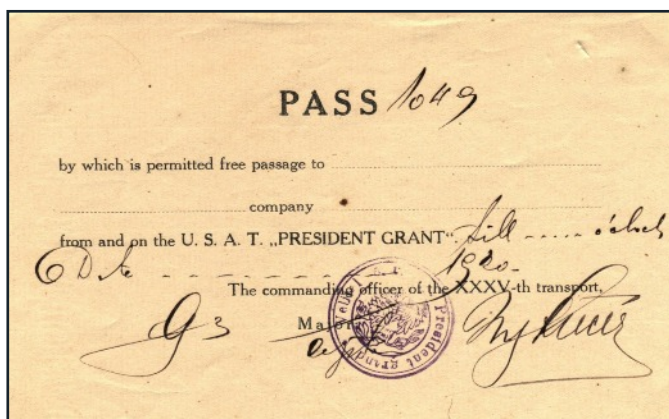 PASS 1049
by which is permitted free passage to
company
from and on the U. S. A. T. „PRESIDENT GRANT“. till o'clock
Date 1920.
The commanding officer of the XXXV-th transport.
93 Major
President Grand